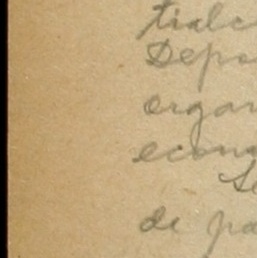 tralc
Depo
organ
econo
Se
de pa